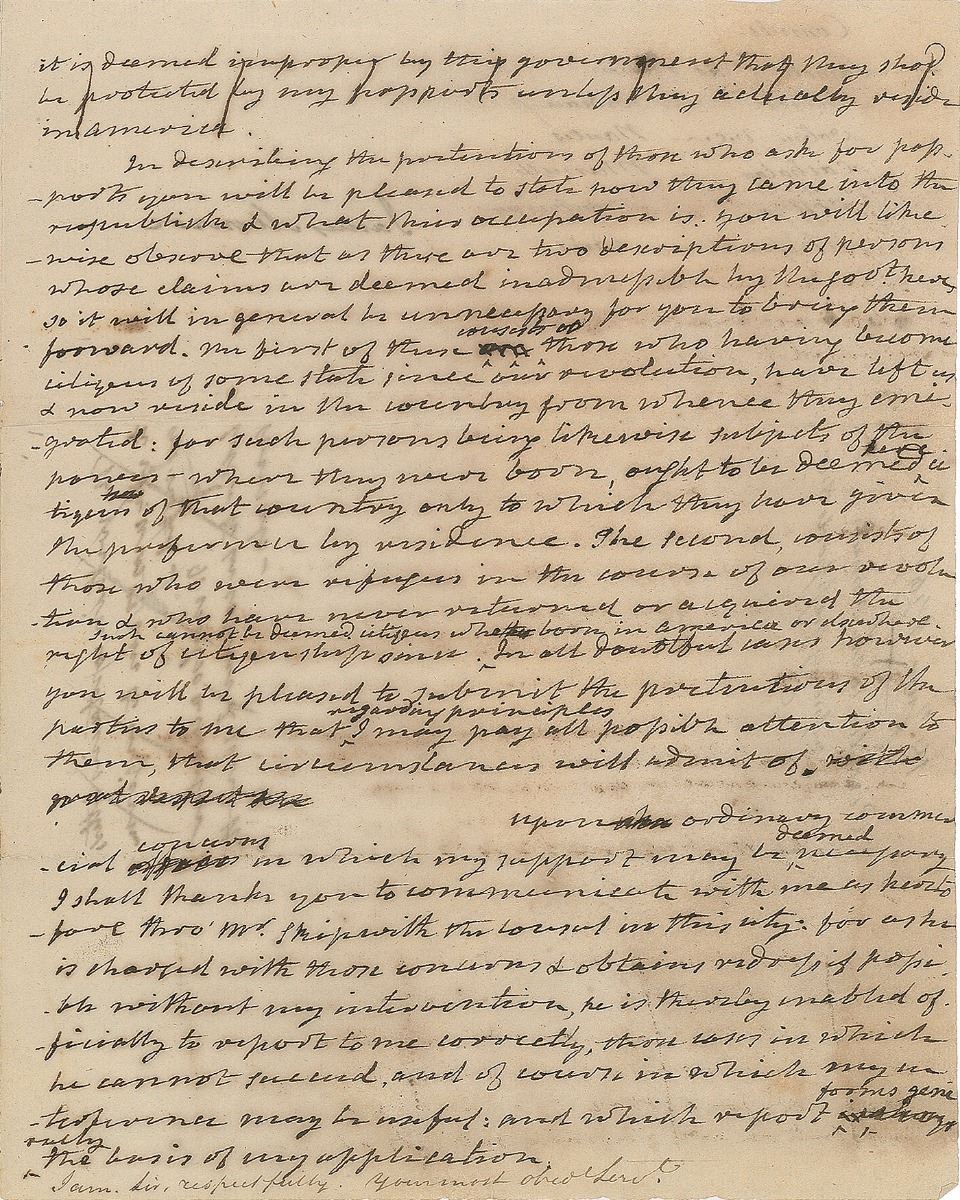 it is deemed improper by this government that they sho'd
be protected by my passports unless they actually reside
in america.
In describing the pretentions of those who ask for pass-
-ports you will be pleased to state how they came into the
republick & what their occupation is. you will like
-wise observe that as there are two descriptions of persons
whose claims are deemed inadmissible by the gov't here,
so it will in general be unnecessary for you to bring them
consists of
forward. The first of these are those who having become
citizens of some state since our revolution, have left us
& now reside in the country from whence they emi-
-grated: for such persons being likewise subjects of the
here
powers where they were born, ought to be deemed ci
tizens of that country only to which they have given
the preference by residence. The second, consists of
those who were refugees in the course of our revolu
-tion & who have never returned or acquired the
such cannot be deemed citizens whether born in america or elsewhere.
right of citizenship since. In all doubtful cases however
you will be pleased to submit the pretentions of the
regarding principles
parties to me that I may pay all possible attention to
them, that circumstances will admit of. with
great respect
upon ordinary commer
concerns deemed
-cial affairs in which my support may be necessary
I shall thank you to communicate with me as hereto
-fore thro' Mr. Skipwith the consul in this city: for as he
is charged with those concerns & obtains redress if possi
-ble without my intervention, he is thereby enabled of-
-ficially to report to me correctly, those cases in which
he cannot succeed, and of course in which my in
forms gene
-terference may be useful: and which report always
rally
the basis of my application.
I am. Sir, respectfully. Your most obed't Serv't.